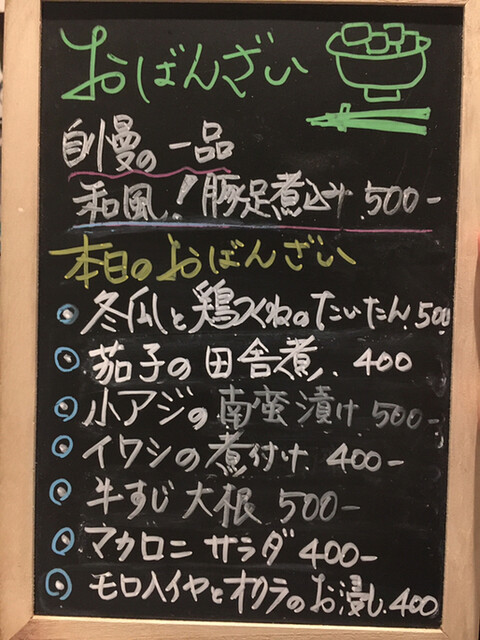 おばんざい
自慢の一品
和風！豚足煮込み 500-
本日のおばんざい
冬瓜と鶏つくねのたいたん.500
茄子の田舎煮. 400
小アジの南蛮漬け 500-
イワシの煮付け 400-
牛すじ大根 500-
マカロニサラダ 400-
モロヘイヤとオクラのお浸し.400